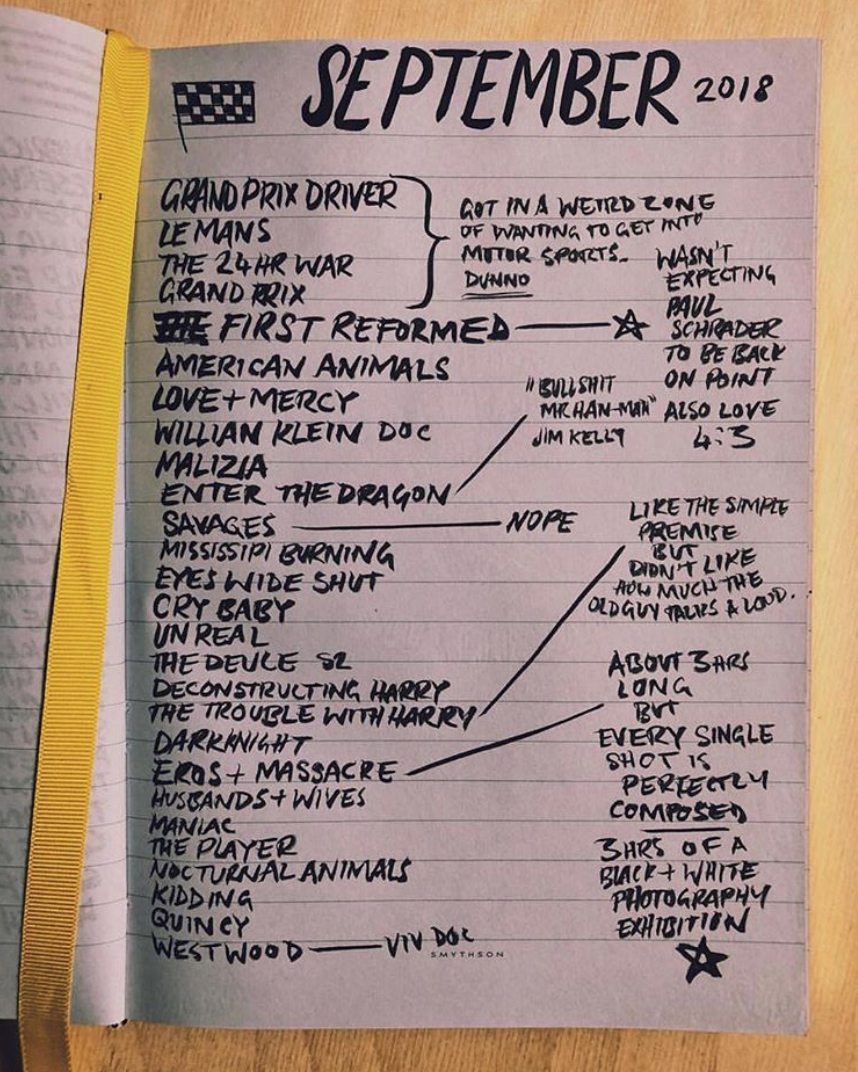 SEPTEMBER 2018
GRAND PRIX DRIVER
LE MANS
THE 24HR WAR
GRAND PRIX
GOT IN A WEIRD ZONE
OF WANTING TO GET INTO
MOTOR SPORTS..
DUNNO
FIRST REFORMED
WASN'T
EXPECTING
PAUL
SCHRADER
TO BE BACK
ON POINT
ALSO LOVE
4:3
AMERICAN ANIMALS
LOVE + MERCY
WILLIAN KLEIN DOC
MALIZIA
ENTER THE DRAGON
"BULLSHIT
MR HAN-MAN"
JIM KELLY
SAVAGES
NOPE
MISSISSIPI BURNING
EYES WIDE SHUT
CRY BABY
UNREAL
THE DEUCE S2
DECONSTRUCTING HARRY
THE TROUBLE WITH HARRY
LIKE THE SIMPLE
PREMISE
BUT
DIDN'T LIKE
HOW MUCH THE
OLD GUY TALKS A LOUD.
DARKKNIGHT
EROS + MASSACRE
ABOUT 3HRS
LONG
BUT
EVERY SINGLE
SHOT IS
PERFECTLY
COMPOSED
3HRS OF A
BLACK + WHITE
PHOTOGRAPHY
EXHIBITION
HUSBANDS + WIVES
MANIAC
THE PLAYER
NOCTURNAL ANIMALS
KIDDING
QUINCY
WESTWOOD
VIV DOC
SMYTHSON